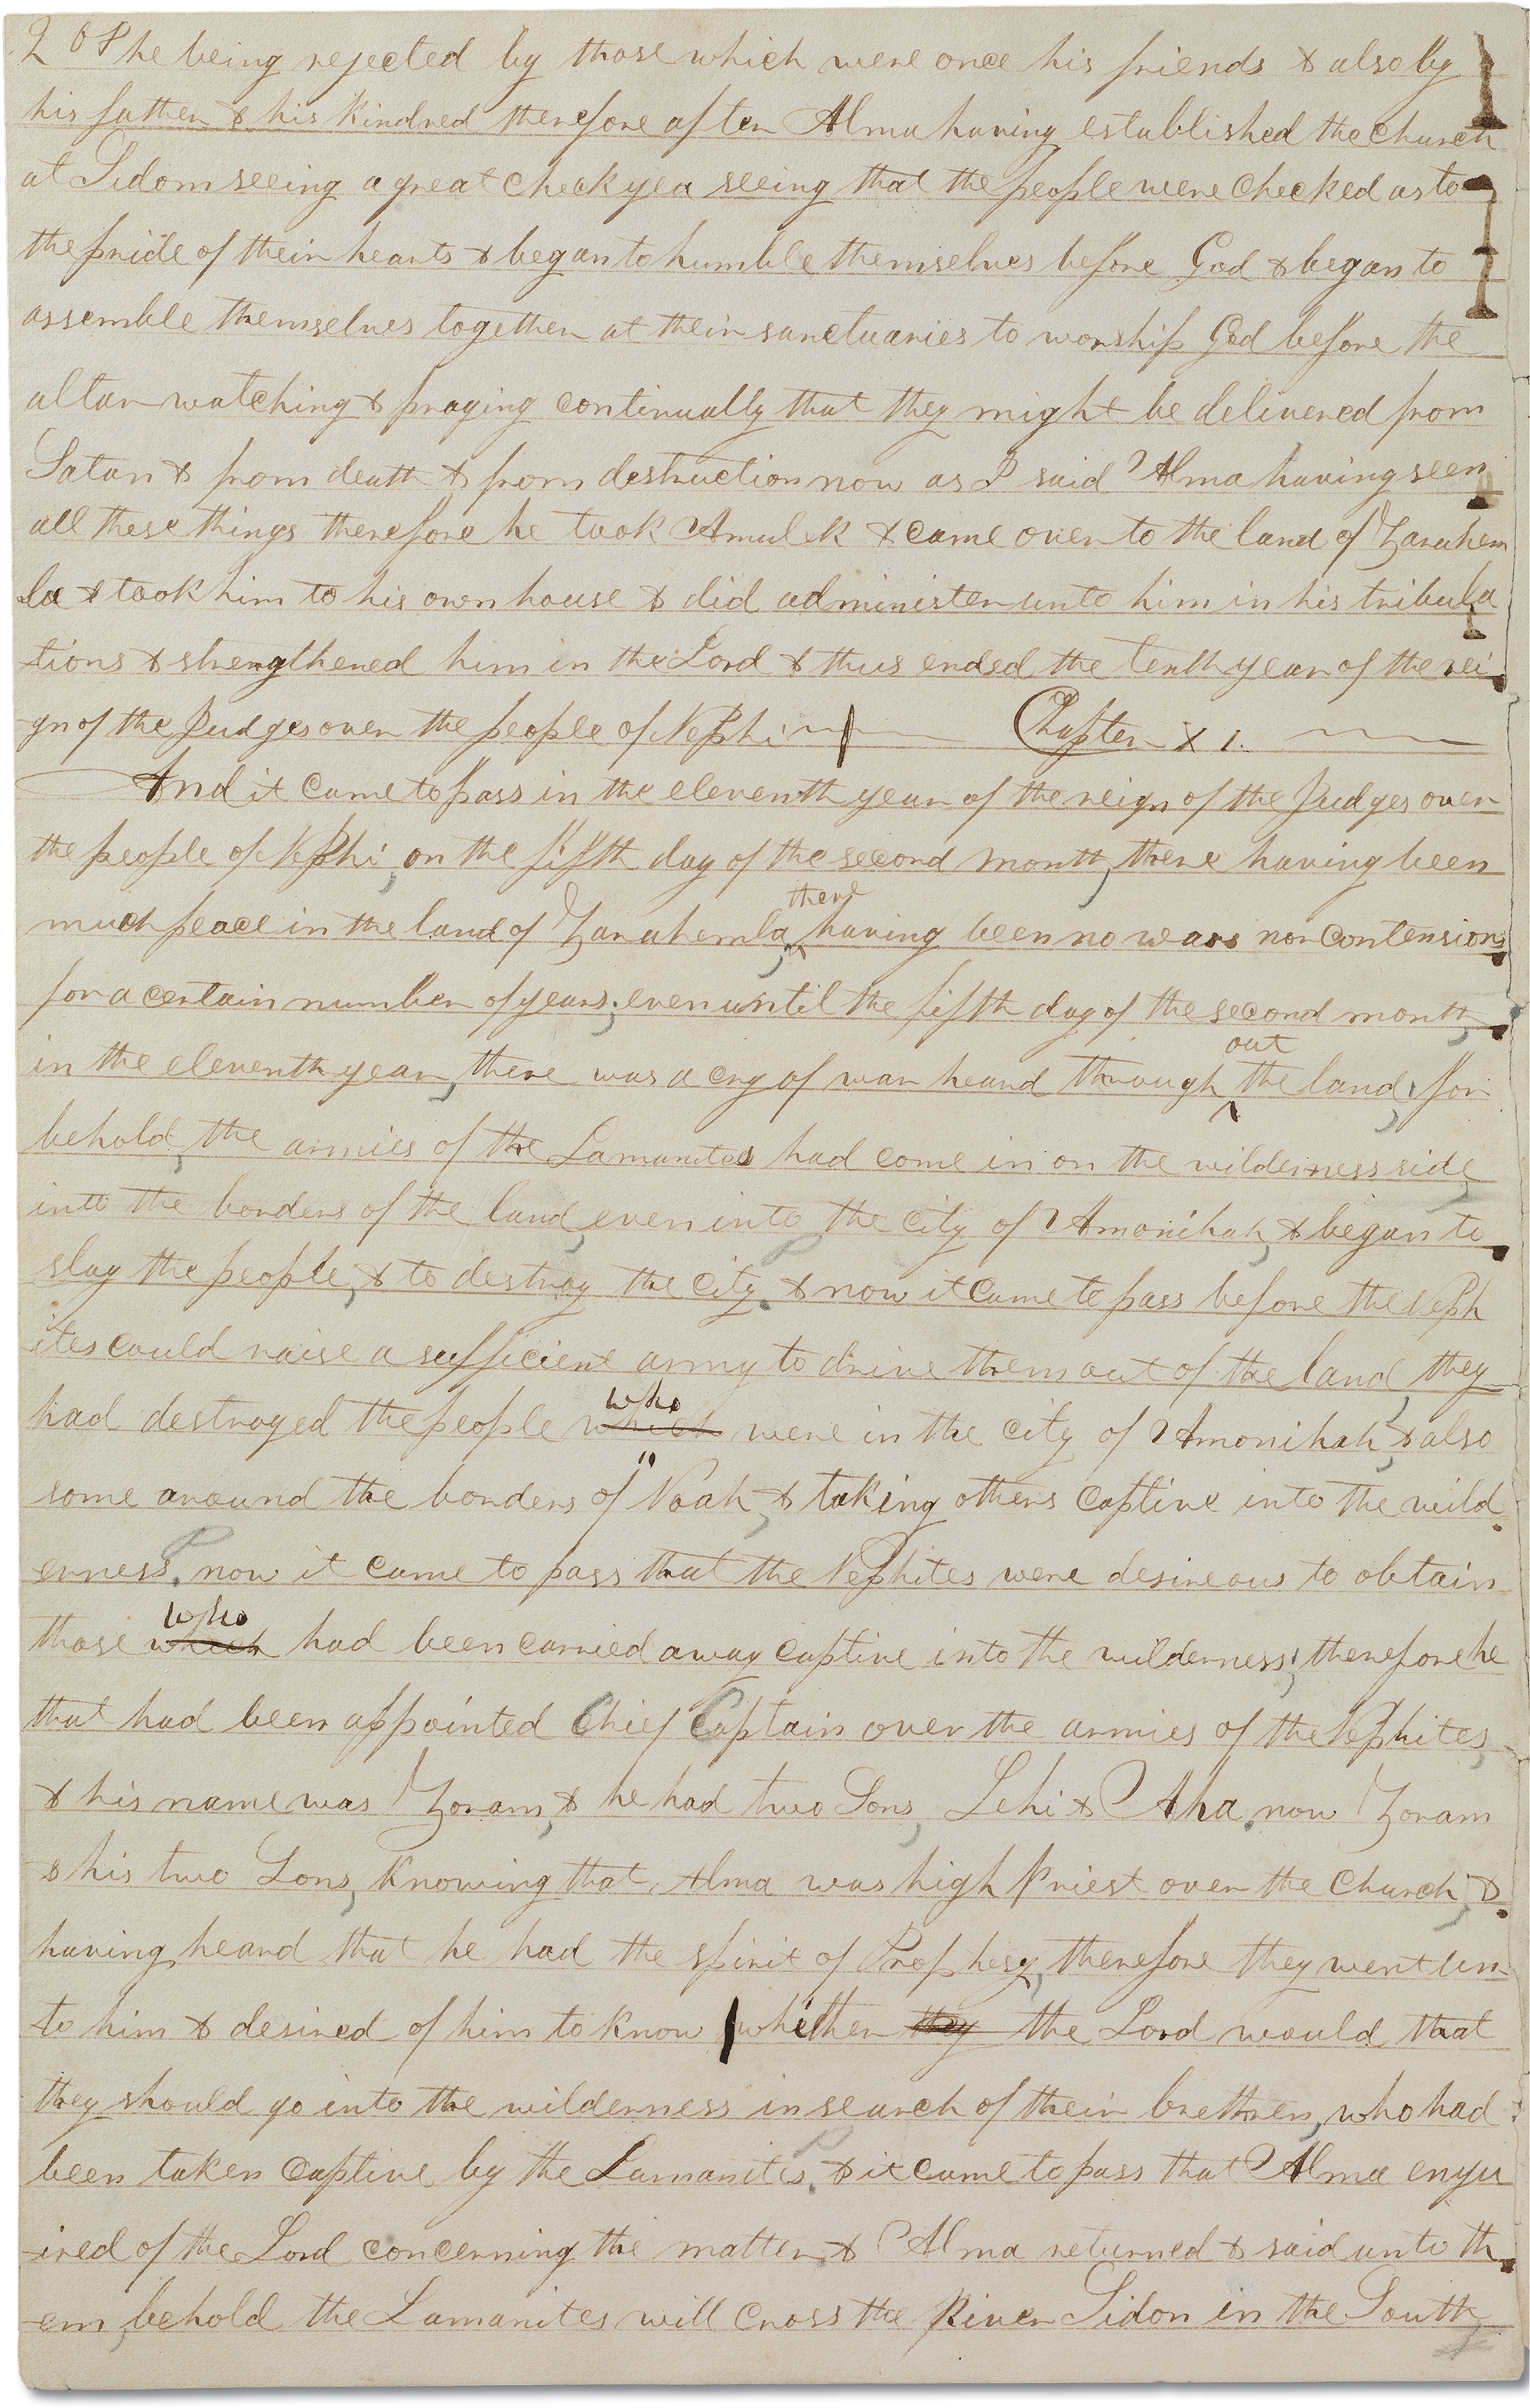 208 he being rejected by those which were once his friends & also by
his father & his kindred therefore after Alma having established the church
at Sidom seeing a great check yea seeing that the people were checked as to
the pride of their hearts & began to humble themselves before God & began to
assemble themselves together at their sanctuaries to worship God before the
altar watching & praying continually that they might be delivered from
Satan & from death & from destruction now as I said Alma having seen
all these things therefore he took Amulek & came over to the land of Zarahem
la & took him to his own house & did administer unto him in his tribula
tions & strengthened him in the Lord & thus ended the tenth year of the rei
gn of the Judges over the people of Nephi Chapter XI.
And it came to pass in the eleventh year of the reign of the Judges over
the people of Nephi, on the fifth day of the second month, there having been
there
much peace in the land of Zarahemla, having been no wars nor contensions
for a certain number of years; even until the fifth day of the second month,
out
in the eleventh year, there was a cry of war heard through the land, for
behold, the armies of the Lamanites had come in on the wilderness side,
into the borders of the land, even into the city of Amonihah, & began to
slay the people, & to destroy the city. & now it came to pass before the Neph
ites could raise a sufficient army to drive them out of the land, they
who
had destroyed the people which were in the city of Amonihah, & also
some around the borders of Noah, & taking others captive into the wild
erness. now it came to pass that the Nephites were desireous to obtain
who
those which had been carried away captive into the wilderness; therefore he
that had been appointed Chief Captain over the armies of the Nephites,
& his name was Zoram, & he had two Sons, Lehi & Aha. now Zoram
& his two Sons, knowing that Alma was high Priest over the Church, &
having heard that he had the spirit of Prophesy, therefore they went un
to him & desired of him to know whether they the Lord would that
they should go into the wilderness in search of their brethren, who had
been taken captive by the Lamanites. & it came to pass that Alma enqu
ired of the Lord concerning the matter & Alma returned & said unto th
em, behold the Lamanites will cross the River Sidon in the South